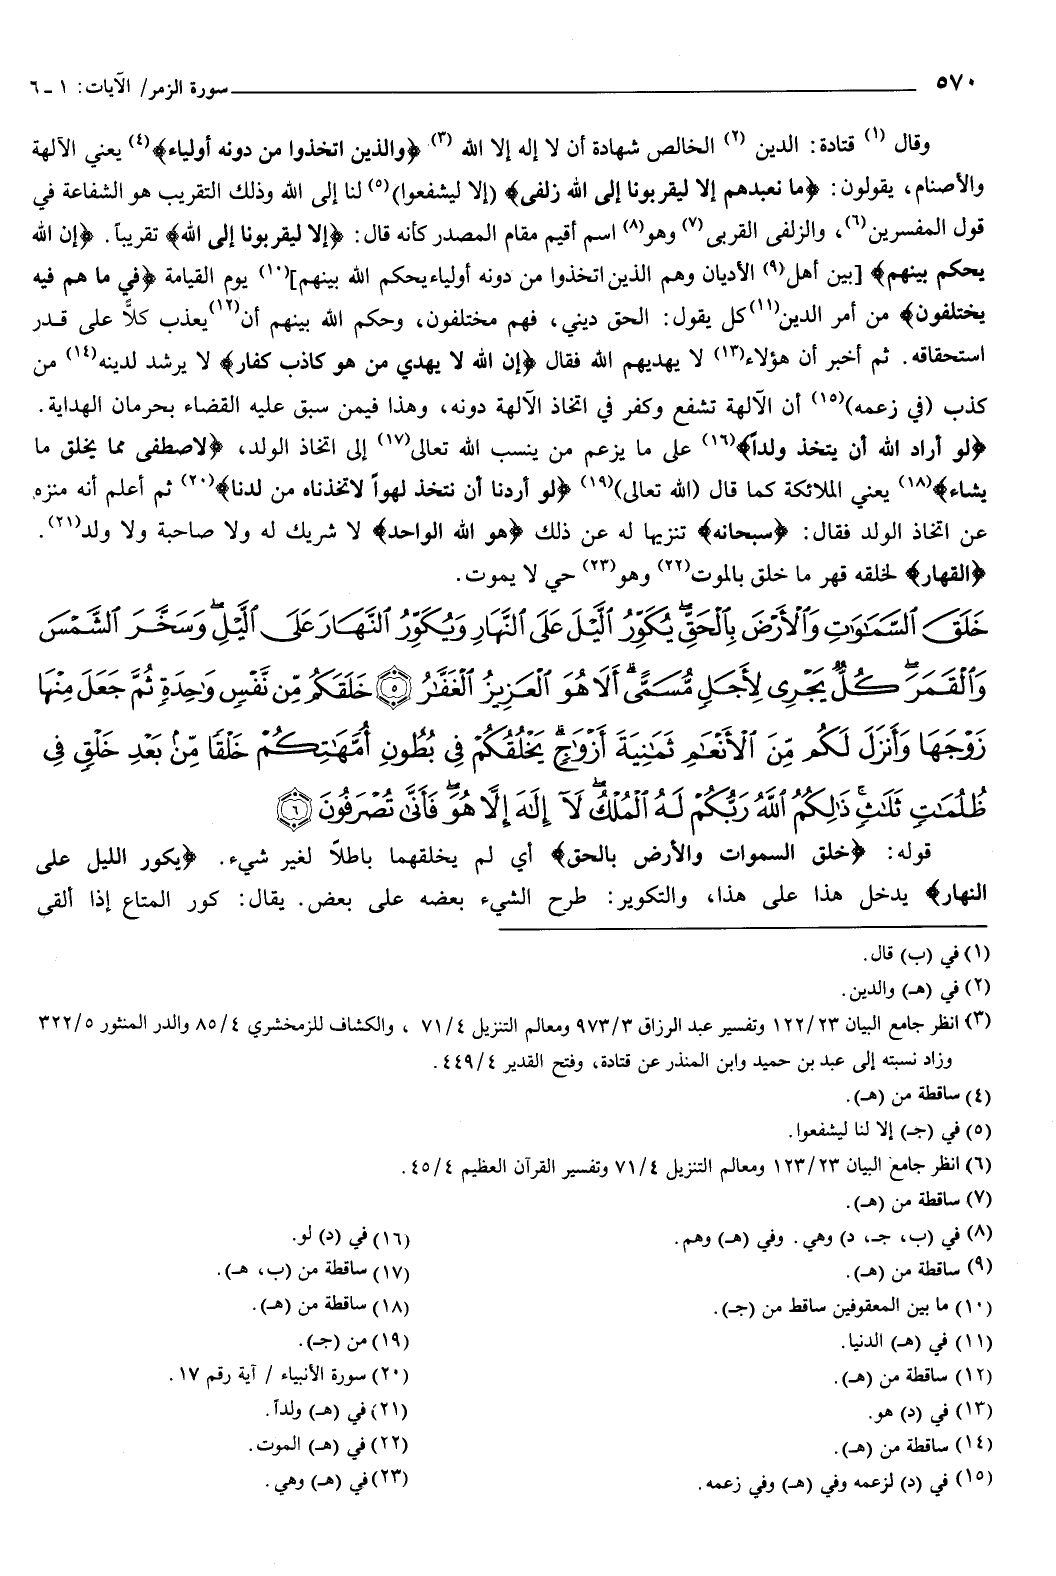 ٥٧٠ سورة الزمر/ الآيات: ١ ـ ٦
وقال (١) قتادة: الدين (٢) الخالص شهادة أن لا إله إلا الله (٣). ﴿والذين اتخذوا من دونه أولياء﴾(٤) يعني الآلهة
والأصنام، يقولون: ﴿ما نعبدهم إلا ليقربونا إلى الله زلفى﴾ (إلا ليشفعوا)(٥) لنا إلى الله وذلك التقريب هو الشفاعة في
قول المفسرين(٦)، والزلفى القربى(٧) وهو(٨) اسم أقيم مقام المصدر كأنه قال: ﴿إلا ليقربونا إلى الله﴾ تقريباً. ﴿إن الله
يحكم بينهم﴾ [بين أهل(٩) الأديان وهم الذين اتخذوا من دونه أولياء يحكم الله بينهم](١٠) يوم القيامة ﴿في ما هم فيه
يختلفون﴾ من أمر الدين(١١) كل يقول: الحق ديني، فهم مختلفون، وحكم الله بينهم أن(١٢) يعذب كلاً على قدر
استحقاقه. ثم أخبر أن هؤلاء(١٣) لا يهديهم الله فقال ﴿إن الله لا يهدي من هو كاذب كفار﴾ لا يرشد لدينه(١٤) من
كذب (في زعمه)(١٥) أن الآلهة تشفع وكفر في اتخاذ الآلهة دونه، وهذا فيمن سبق عليه القضاء بحرمان الهداية.
﴿لو أراد الله أن يتخذ ولداً﴾(١٦) على ما يزعم من ينسب الله تعالى(١٧) إلى اتخاذ الولد، ﴿لاصطفى مما يخلق ما
يشاء﴾(١٨) يعني الملائكة كما قال (الله تعالى)(١٩) ﴿لو أردنا أن نتخذ لهواً لاتخذناه من لدنا﴾(٢٠) ثم أعلم أنه منزه
عن اتخاذ الولد فقال: ﴿سبحانه﴾ تنزيها له عن ذلك ﴿هو الله الواحد﴾ لا شريك له ولا صاحبة ولا ولد(٢١).
﴿القهار﴾ لخلقه قهر ما خلق بالموت(٢٢) وهو(٢٣) حي لا يموت.
خَلَقَ ٱلسَّمَٰوَٰتِ وَٱلْأَرْضَ بِٱلْحَقِّ ۖ يُكَوِّرُ ٱلَّيْلَ عَلَى ٱلنَّهَارِ وَيُكَوِّرُ ٱلنَّهَارَ عَلَى ٱلَّيْلِ ۖ وَسَخَّرَ ٱلشَّمْسَ
وَٱلْقَمَرَ ۖ كُلٌّ يَجْرِى لِأَجَلٍ مُّسَمًّى ۗ أَلَا هُوَ ٱلْعَزِيزُ ٱلْغَفَّٰرُ ۝٥ خَلَقَكُم مِّن نَّفْسٍ وَٰحِدَةٍ ثُمَّ جَعَلَ مِنْهَا
زَوْجَهَا وَأَنزَلَ لَكُم مِّنَ ٱلْأَنْعَٰمِ ثَمَٰنِيَةَ أَزْوَٰجٍ ۚ يَخْلُقُكُمْ فِى بُطُونِ أُمَّهَٰتِكُمْ خَلْقًا مِّنۢ بَعْدِ خَلْقٍ فِى
ظُلُمَٰتٍ ثَلَٰثٍ ۚ ذَٰلِكُمُ ٱللَّهُ رَبُّكُمْ لَهُ ٱلْمُلْكُ ۖ لَآ إِلَٰهَ إِلَّا هُوَ ۖ فَأَنَّىٰ تُصْرَفُونَ ۝٦
قوله: ﴿خلق السموات والأرض بالحق﴾ أي لم يخلقهما باطلاً لغير شيء. ﴿يكور الليل على
النهار﴾ يدخل هذا على هذا، والتكوير: طرح الشيء بعضه على بعض. يقال: كور المتاع إذا ألقى
(١) في (ب) قال.
(٢) في (هـ) والدين.
(٣) انظر جامع البيان ١٢٢/٢٣ وتفسير عبد الرزاق ٩٧٣/٣ ومعالم التنزيل ٧١/٤ ، والكشاف للزمخشري ٨٥/٤ والدر المنثور ٣٢٢/٥
وزاد نسبته إلى عبد بن حميد وابن المنذر عن قتادة، وفتح القدير ٤٤٩/٤.
(٤) ساقطة من (هـ).
(٥) في (جـ) إلا لنا ليشفعوا.
(٦) انظر جامع البيان ١٢٣/٢٣ ومعالم التنزيل ٧١/٤ وتفسير القرآن العظيم ٤٥/٤.
(٧) ساقطة من (هـ).
(٨) في (ب، جـ، د) وهي. وفي (هـ) وهم.
(٩) ساقطة من (هـ).
(١٠) ما بين المعقوفين ساقط من (جـ).
(١١) في (هـ) الدنيا.
(١٢) ساقطة من (هـ).
(١٣) في (د) هو.
(١٤) ساقطة من (هـ).
(١٥) في (د) لزعمه وفي (هـ) وفي زعمه.
(١٦) في (د) لو.
(١٧) ساقطة من (ب، هـ).
(١٨) ساقطة من (هـ).
(١٩) من (جـ).
(٢٠) سورة الأنبياء / آية رقم ١٧.
(٢١) في (هـ) ولداً.
(٢٢) في (هـ) الموت.
(٢٣) في (هـ) وهي.